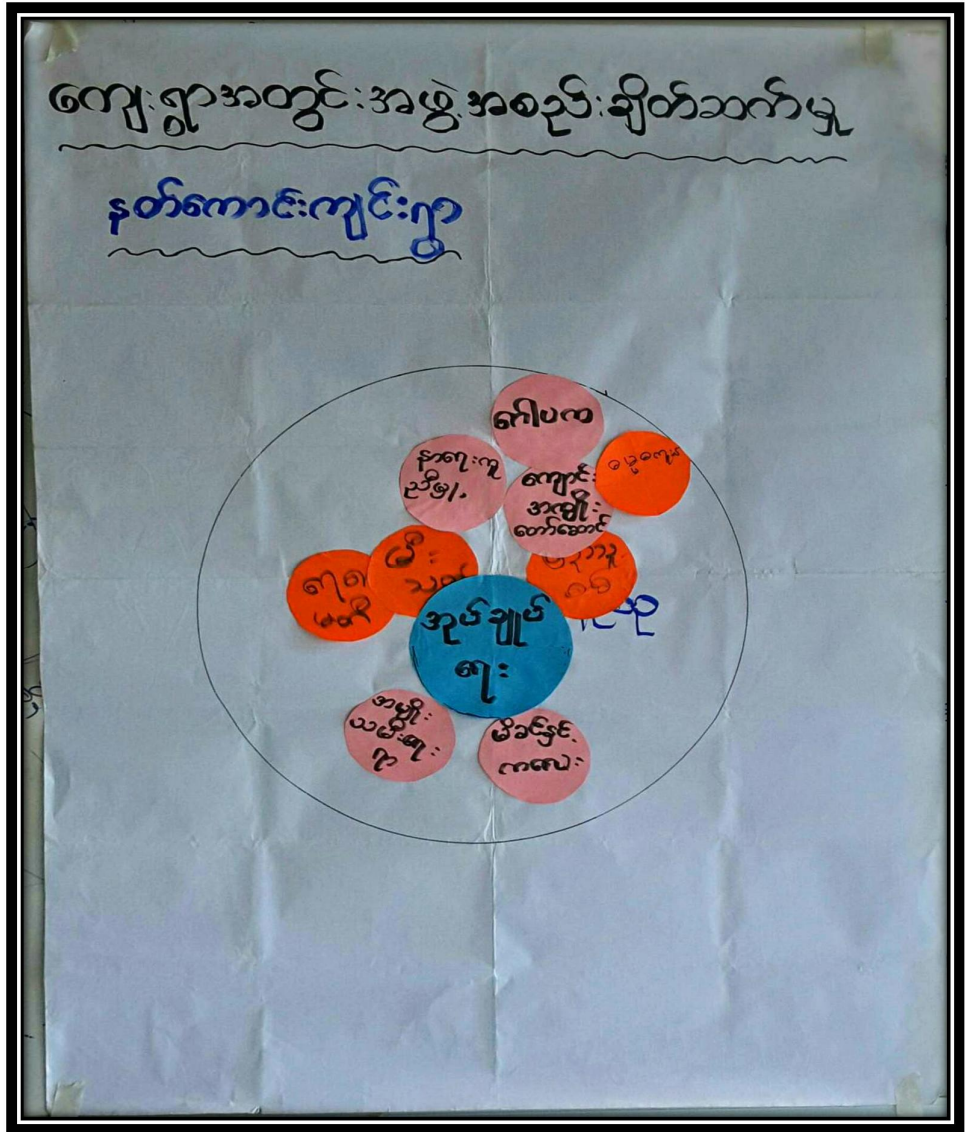 ကျေးရွာအတွင်းအဖွဲ့အစည်းချိတ်ဆက်မှု
နတ်ကောင်းကျင်းရွာ
ဂေါပက
နာရေးကူ
ညီမှု
ကျောင်း
အကျိုး
တော်ဆောင်
မီး
သတ်
အုပ်ချုပ်
ရေး
အမျိုး
သမီးရေး
ရာ
မိခင်နှင့်
ကလေး